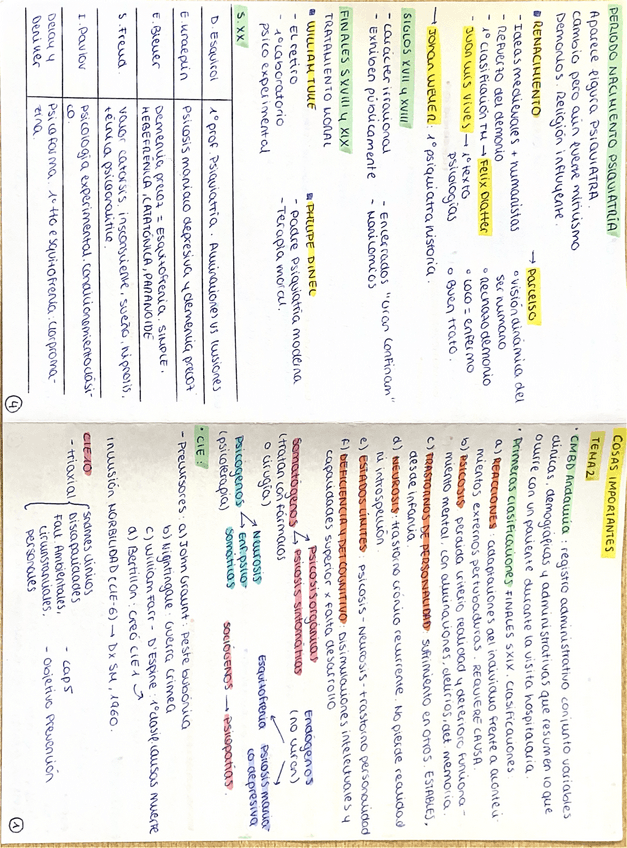 PERIODO NACIMIENTO PSIQUIATRÍA
Aparece figura PSIQUIATRA.
Cambio pero aún llueve muchísimo
Demonios. Religión influyente.
▪ RENACIMIENTO
- Ideas medievales + humanistas
- Refuerzo del demonio
- 1ª clasificación TM → Felix Platter
- Juan Luis Vives → 1º texto
psicologías
→ Johan WEYER: 1º psiquiatra historia.
→ Parcelso
o visión dinámica del
ser humano
o rechazo demonio
o loco = enfermo
o Buen trato.
SIGLOS XVII y XVIII
- carácter irracional
- Exhiben públicamente
- Encerrados "Gran Confinam"
- Manicomios
FINALES S XVIII y XIX
TRATAMIENTO MORAL
▪ WILLIAM TUKE
- El retiro
- 1º laboratorio
psico experimental
▪ PHILIPE PINEL
- Padre Psiquiatría moderna
- Terapia moral.
S. XX
D. Esquirol
1º prof Psiquiatría. Alucinaciones vs ilusiones
E. Kraepelin
Psicosis maniaco depresiva y demencia precoz
E. Breuer
Demencia precoz = Esquizofrenia. SIMPLE,
HEBEFRÉNICA, CATATÓNICA, PARANOIDE
S. Freud.
Valor catarsis, insconsciente, sueño, hipnosis,
técnica psicoanalítica.
I. Pavlov
Psicología experimental, condicionamiento clási-
co.
Delay y
Deniker
Psicofarma, 1º tto esquizofrenia. Clorproma-
zina.
4
COSAS IMPORTANTES
TEMA 2
· CMBD Andalucía: registro administrativo conjunto variables
clínicas, demográficas y administrativas que resumen lo que
ocurre con un paciente durante la visita hospitalaria.
· Primeras clasificaciones FINALES S.XIX. Clasificaciones
a) REACCIONES: adaptaciones del individuo frente a aconteci-
mientos externos perturbadoras. REQUIERE CAUSA.
b) PSICOSIS: perdida criterio realidad y deterioro funciona-
miento mental, con alucinaciones, delirios, det memoria.
c) TRASTORNOS DE PERSONALIDAD: sufrimiento en otros. ESTABLES,
desde infancia.
d) NEUROSIS: trastorno crónico recurrente. No pierde realidad
ni introspección.
e) ESTADOS LÍMITES: Psicosis - Neurosis - trastorno personalidad
f) DEFICIENCIA Y DET COGNITIVO: Disimulaciones intelectuales y
capacidades superior x falta desarrollo
Somatógenos
(tratan con fármacos
o cirugías)
Psicosis orgánicas
Psicosis sintomáticas
Endógenos
(no curan)
Esquizofrenia
Psicosis maniaco
depresiva
Psicógenos
(psicoterapia)
Neurosis
Enf. psico
somáticas
SOCIÓGENOS → Psicopatías.
· CIE:
- Precursores: a) John Graunt: Peste bubónica
b) Nightingale: Guerra Crimea
c) William Farr - D'Espine: 1º clasif causas muerte
d) Bertillon: Creó CIE 1
Inclusión MORBILIDAD (CIE-6) → DX SM, 1960.
CIE 10
- triaxial
Sndmes clínicos
Discapacidades
Fact Ambientales,
circunstanciales,
personales
- Cap 5
- Objetivo Prevención
1